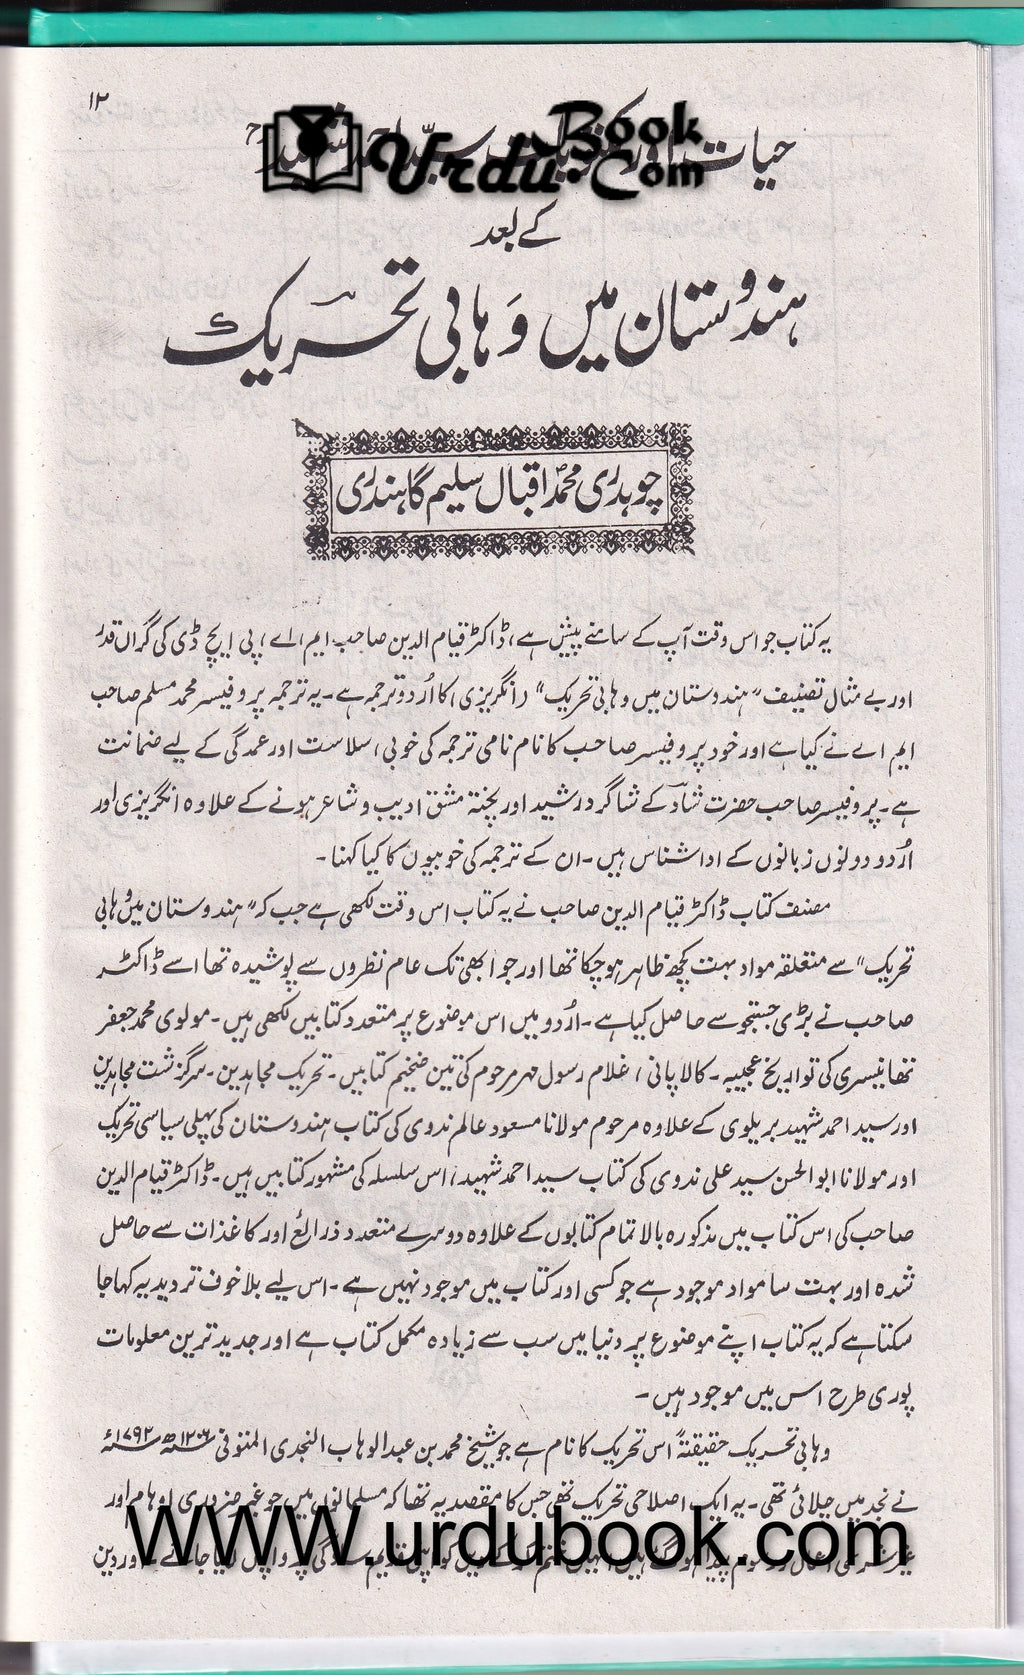 ۱۲
حیات اور تحریک سید احمد شہیدؒ
Urdu Book .Com
کے بعد
ہندوستان میں وہابی تحریک
چوہدری محمد اقبال سلیم گاہندری
یہ کتاب جو اس وقت آپ کے سامنے پیش ہے، ڈاکٹر قیام الدین صاحب ایم، اے، پی ایچ ڈی کی گراں قدر
اور بے مثال تصنیف "ہندوستان میں وہابی تحریک" (انگریزی) کا اُردو ترجمہ ہے۔ یہ ترجمہ پروفیسر محمد مسلم صاحب
ایم اے نے کیا ہے اور خود پروفیسر صاحب کا نام نامی ترجمہ کی خوبی، سلاست اور عمدگی کے لیے ضمانت
ہے۔ پروفیسر صاحب حضرت شادؔ کے شاگرد رشید اور پختہ مشق ادیب و شاعر ہونے کے علاوہ انگریزی اور
اُردو دونوں زبانوں کے ادا شناس ہیں۔ ان کے ترجمہ کی خوبیوں کا کیا کہنا۔
مصنف کتاب ڈاکٹر قیام الدین صاحب نے یہ کتاب اس وقت لکھی ہے جب کہ "ہندوستان میں وہابی
تحریک" سے متعلقہ مواد بہت کچھ ظاہر ہو چکا تھا اور جو ابھی تک عام نظروں سے پوشیدہ تھا اسے ڈاکٹر
صاحب نے بڑی جستجو سے حاصل کیا ہے۔ اُردو میں اس موضوع پر متعدد کتابیں لکھی ہیں۔ مولوی محمد جعفر
تھانیسری کی تواریخ عجیبہ۔ کالا پانی، غلام رسول مہر مرحوم کی تین ضخیم کتابیں۔ تحریک مجاہدین۔ سرگزشت مجاہدین
اور سید احمد شہید بریلوی کے علاوہ مرحوم مولانا مسعود عالم ندوی کی کتاب ہندوستان کی پہلی سیاسی تحریک
اور مولانا ابوالحسن سید علی ندوی کی کتاب سید احمد شہید، اس سلسلہ کی مشہور کتابیں ہیں۔ ڈاکٹر قیام الدین
صاحب کی اس کتاب میں مذکورہ بالا تمام کتابوں کے علاوہ دوسرے متعدد ذرائع اور کاغذات سے حاصل
شدہ اور بہت سا مواد موجود ہے جو کسی اور کتاب میں موجود نہیں ہے۔ اس لیے بلا خوف تردید یہ کہا جا
سکتا ہے کہ یہ کتاب اپنے موضوع پر دنیا میں سب سے زیادہ مکمل کتاب ہے اور جدید ترین معلومات
پوری طرح اس میں موجود ہیں۔
وہابی تحریک حقیقتہً اس تحریک کا نام ہے جو شیخ محمد بن عبدالوہاب النجدی المتوفی ۱۲۰۶ھ ۱۷۹۲ء
نے نجد میں چلائی تھی۔ یہ ایک اصلاحی تحریک تھی جس کا مقصد یہ تھا کہ مسلمانوں میں جو غیر ضروری اوہام اور
WWW.urdubook.com